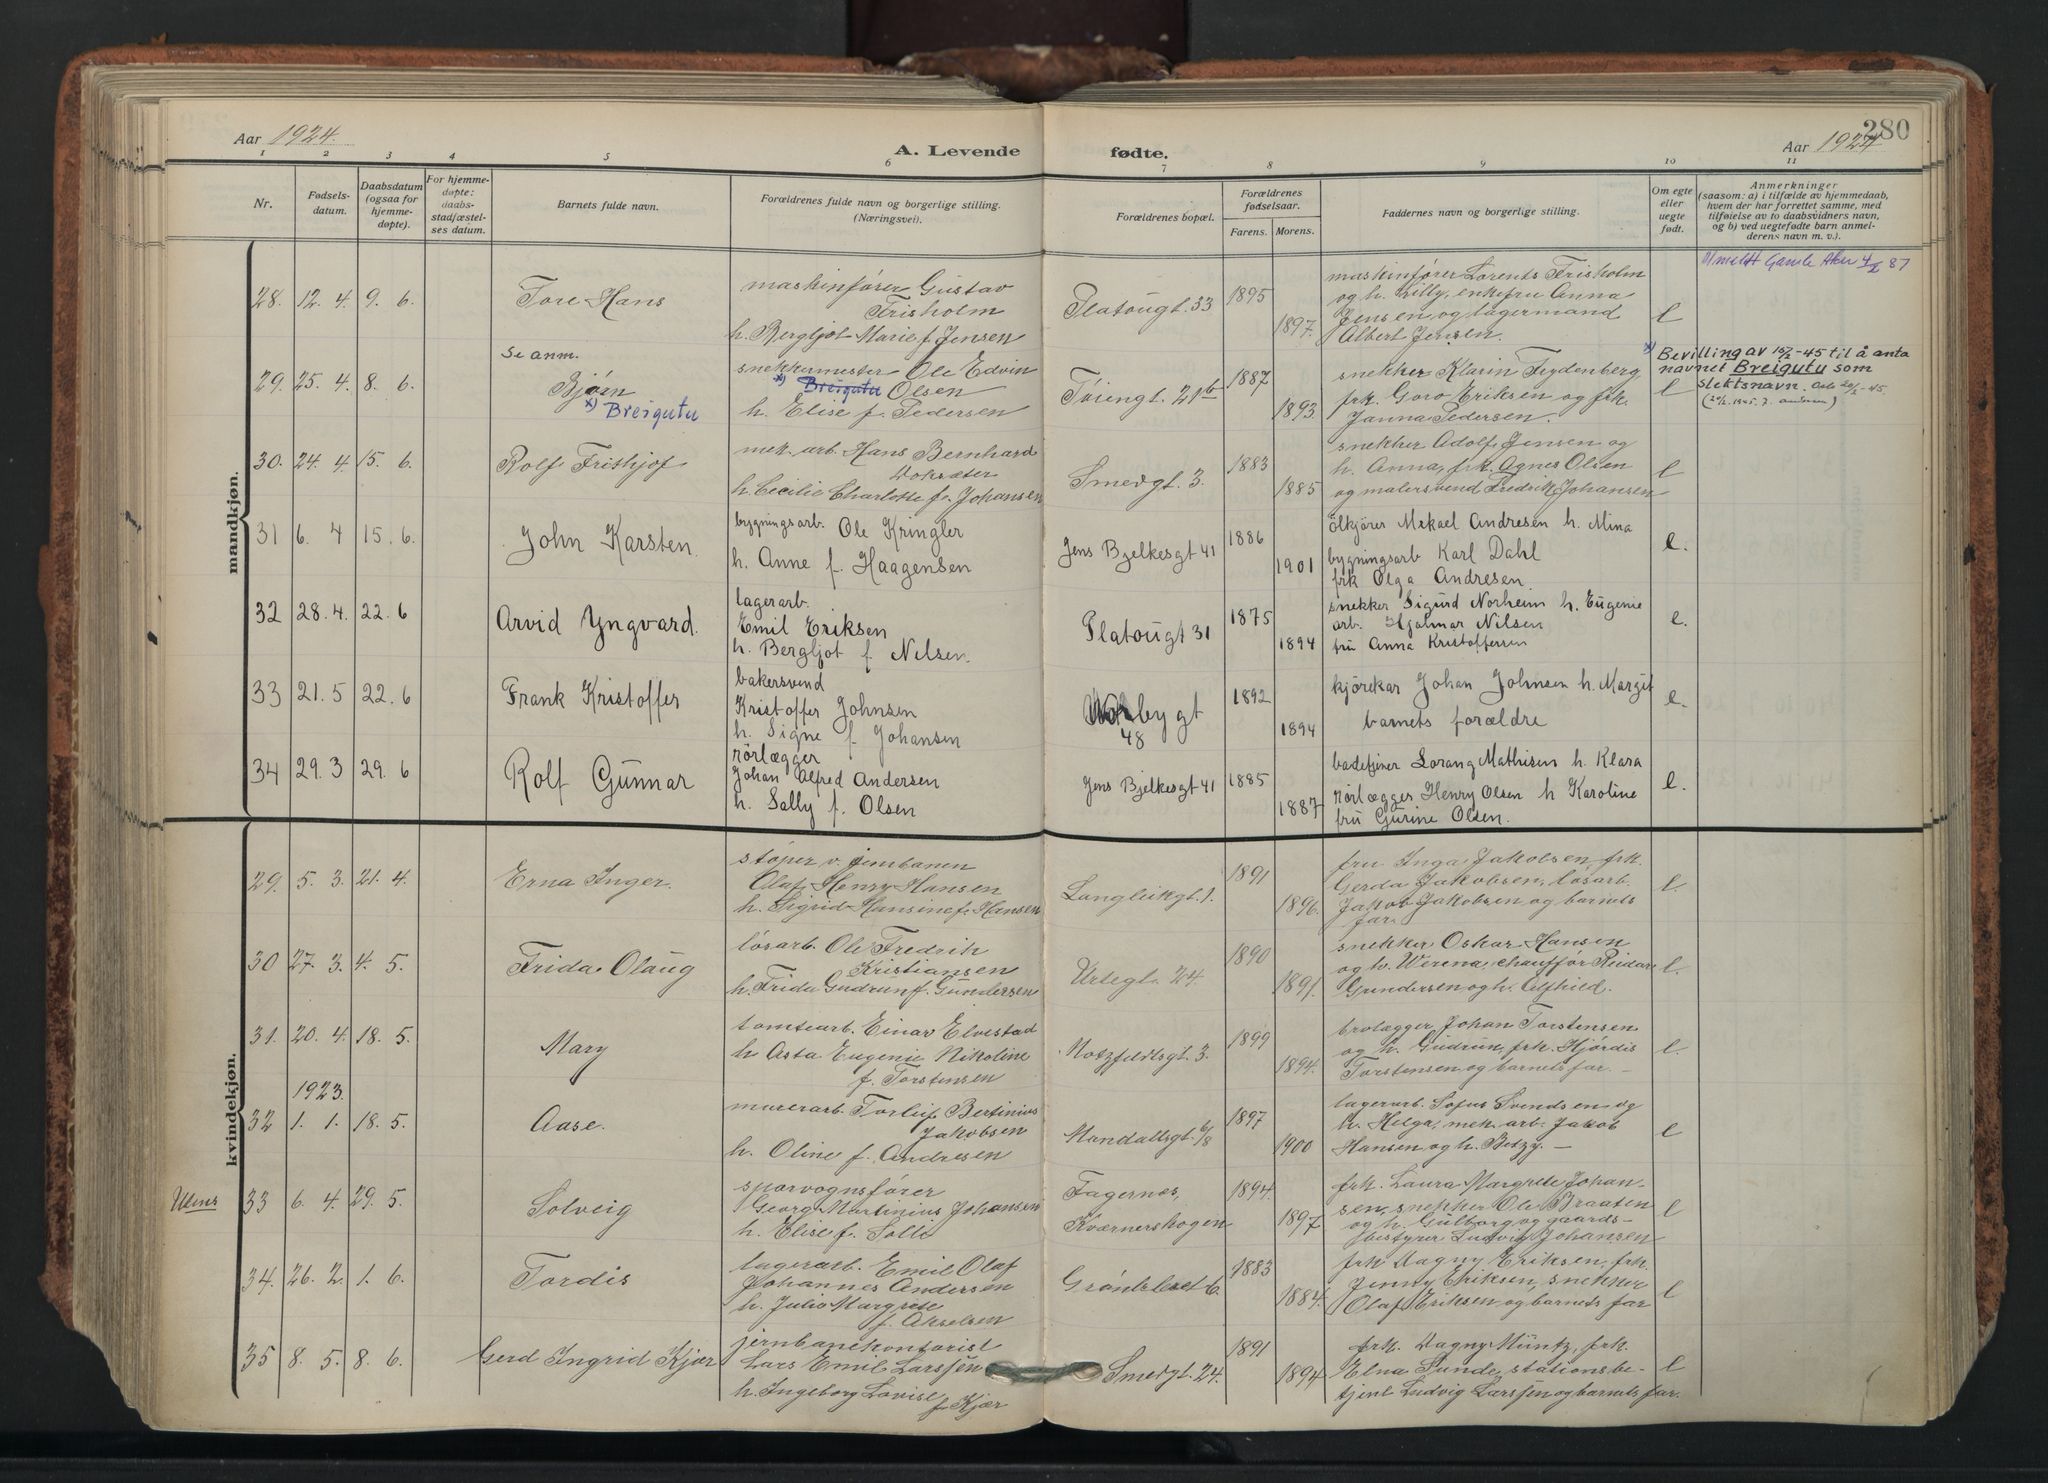 280
Aar 1924.
A. Levende
fødte.
Aar 1924
1 2 3 4 5 6 7 8 9 10 11
Nr.
Fødsels-
datum.
Daabsdatum
(ogsaa for
hjemme-
døpte).
For hjemme-
døpte:
daabs-
stadfæstel-
ses datum.
Barnets fulde navn.
Forældrenes fulde navn og borgerlige stilling.
(Næringsvei).
Forældrenes bopæl.
Forældrenes
fødselsaar.
Farens. Morens.
Faddernes navn og borgerlige stilling.
Om egte
eller
uegte
født.
Anmerkninger
(saasom: a) i tilfælde av hjemmedaab,
hvem der har forrettet samme, med
tilføielse av to daabsvidners navn,
og b) ved uegtefødte barn anmel-
derens navn m. v.).
mandkjøn.
28. 12. 4. 9. 6.
Tore Hans
maskinfører Gustav
Frisholm
h. Bergljot Marie f. Jensen
Platougt. 33
1895
1897.
maskinfører Lorents Frisholm
og h. Lilly, enkefru Anna
Jensen og lagermand
Albert Jensen.
e
Utmeldt Gamle Aker 4/2 87
29. 25. 4. 8. 6.
Se anm.
Bjørn
x) Breigutu
snekkermester Ole Edvin
x) Breigutu Olsen
h. Elise f. Pedersen
Tøiengt. 21b
1887
1893.
snekker Klarin Frydenberg,
frk. Goro Eriksen og frk.
Janna Pedersen.
e
x) Bevilling av 15/2-45 til å anta
navnet Breigutu som
slektsnavn. Oslo 20/2-45.
30. 24. 4. 15. 6.
Rolf Frithjof
mek. arb. Hans Bernhard
h. Cecilie Charlotte f. Johansen
Smedgt. 3.
1883
1885
snekker Adolf Jensen og
h. Anna, frk. Agnes Olsen
og malersvend Fredrik Johansen
e
31 6. 4 15. 6.
John Karsten.
bygningsarb. Ole Kringler
h. Anne f. Haagensen
Jens Bjelkesgt 41
1886
1901
ølkjører Mikael Andresen h. Mina
bygningsarb Karl Dahl
frk Olga Andresen.
e.
32 28. 4. 22. 6
Arvid Yngvard.
lagerarb.
Emil Eriksen
h. Bergljot f. Nilsen.
Platougt 31
1875
1894
snekker Sigurd Norheim h. Eugenie
arb. Hjalmar Nilsen
fru Anna Kristoffersen
e.
33 21. 5 22. 6
Frank Kristoffer
bakersvend
Kristoffer Johnsen
h. Signe f. Johansen
48
1892
1894
kjørekar Johan Johnsen h. Margit
barnets forældre
e.
34 29. 3 29. 6
Rolf Gunnar
rørlægger
Johan Alfred Andersen
h. Sally f. Olsen
Jens Bjelkesgt 41
1885
1887
badetjener Lorang Mathisen h. Klara
rørlægger Henry Olsen h Karoline
fru Gurine Olsen.
e.
kvindekjøn.
29. 5. 3. 21. 4.
Erna Inger.
støper v. jernbanen
Olaf Henry Hansen
h. Sigrid Hansine f. Hansen
Langleikgt. 1.
1891
1896.
fru Inga Jakobsen, frk.
Gerda Jakobsen, løsarb.
Jakob Jakobsen og barnets
far.
e.
30 27. 3. 4. 5.
Frida Olaug
løsarb. Ole Fredrik
Kristiansen
h. Frida Gudrun f. Gundersen
Urtegt. 24.
1890
1891.
snekker Oskar Hansen
og h. Werena, chauffør Reidar
Gundersen og h. Alfhild.
e.
31. 20. 4. 18. 5.
Mary
tomtearb. Einar Elvestad
h Asta Eugenie Nikoline
f. Torstensen
Motzfeldtsgt. 3.
1899
1894.
brolægger Johan Torstensen
og h. Gudrun, frk. Hjørdis
Torstensen og barnets far. –
e.
1923.
32 1. 1. 18. 5.
Aase.
murerarb. Torleif Bertinius
Jakobsen
h. Oline f. Andresen
Mandallsgt. 6/8
1897
1900
lagerarb. Sofus Svendsen og
h. Helga, mek. arb. Jakob
Hansen og h. Betzy. –
e
Utens
33 6. 4. 29. 5.
Solveig
sporvognsfører
Georg Martinius Johansen
h. Elise f. Solli
Fagernæs,
Kværnerskogen
1894.
1897
frk. Laura Margrete Johan-
sen, snekker Ole Braaten
og h. Gulborg og gaards-
bestyrer Ludvig Johansen
e
34. 26. 2. 1. 6.
Tordis
lagerarb. Emil Olaf
Johannes Andersen
h. Julie Margrete
f. Akselsen
Grønlbleret 6.
1883
1884.
frk Dagny Eriksen, frk.
Jenny Eriksen, snekker
Olaf Eriksen og barnets far
e
35 8. 5. 8. 6.
Gerd Ingrid Kjær
jernbanekontorist
Lars Emil Larssen
h. Ingeborg Lovise
f. Kjær
Smedgt. 24.
1891
1894
frk. Dagny Müntz, frk.
Elna Sunde, stationsbe-
tjent Ludvig Larssen og barnets far.
e